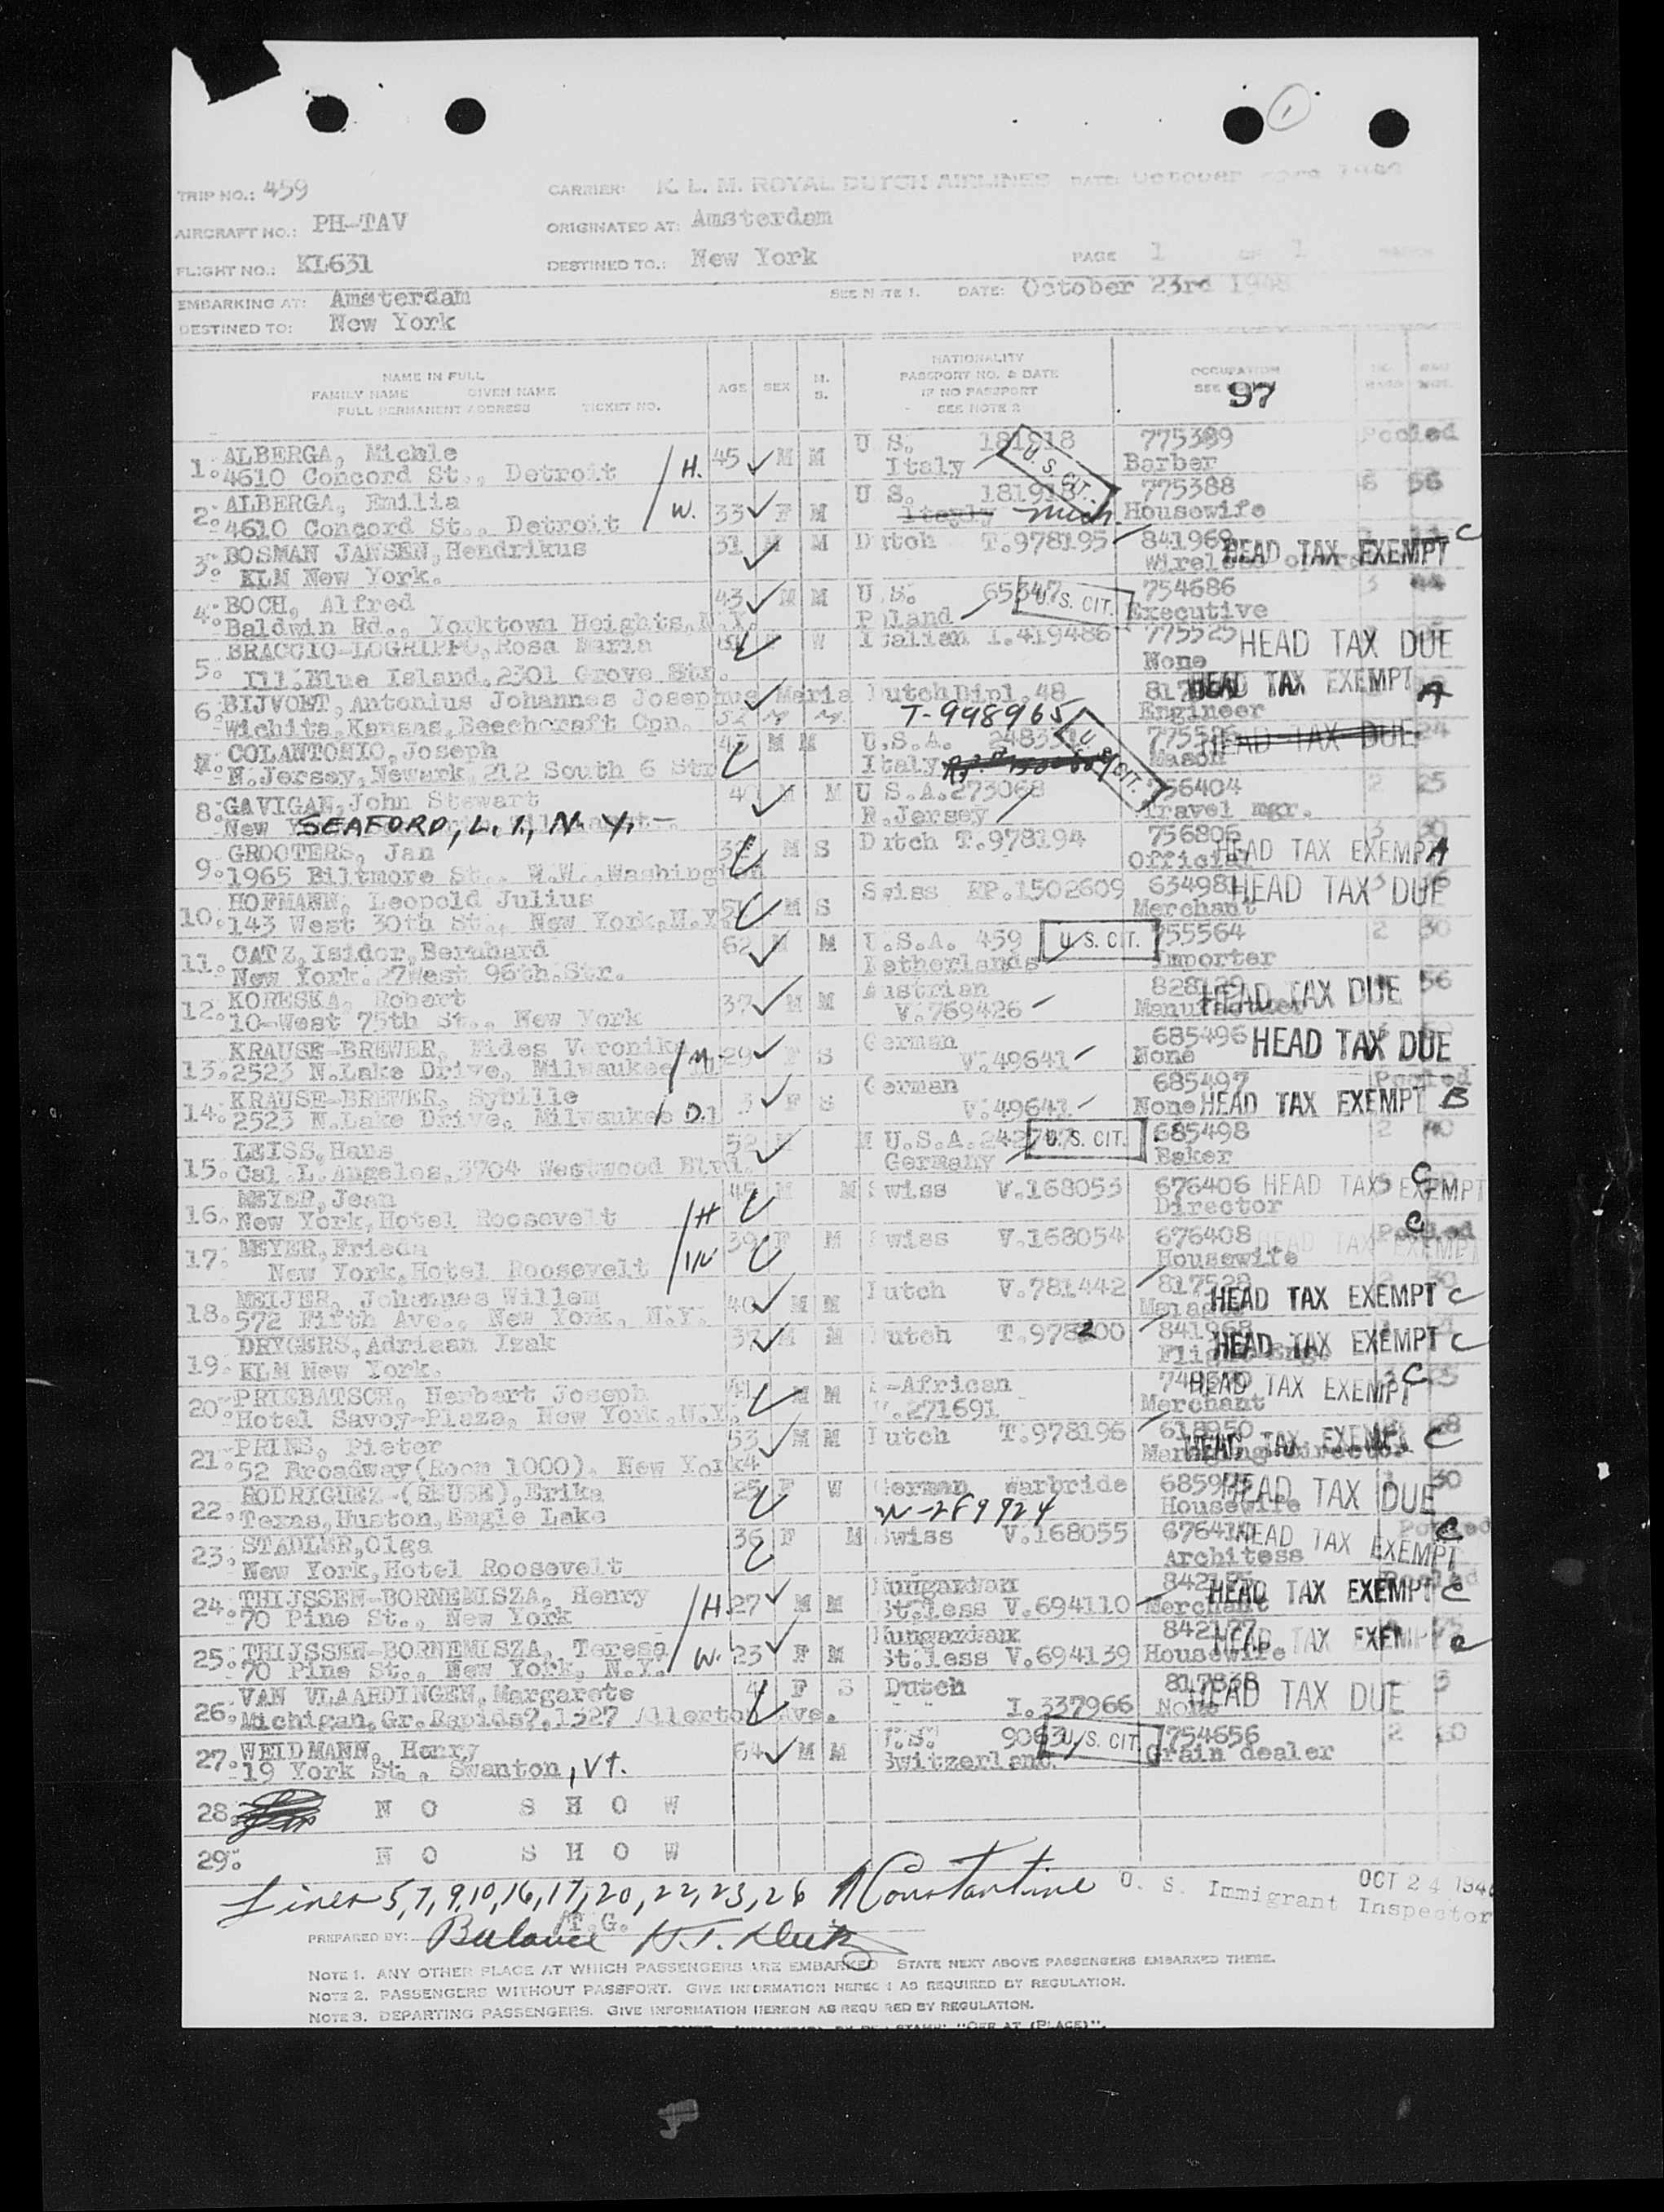 1
TRIP NO.: 459 CARRIER: K. L. M. ROYAL DUTCH AIRLINES DATE: October 1948
AIRCRAFT NO.: PH-TAV ORIGINATED AT: Amsterdam
FLIGHT NO.: KL631 DESTINED TO.: New York PAGE 1 OF 1
EMBARKING AT: Amsterdam SEE NOTE 1. DATE: October 23rd 1948
DESTINED TO: New York
NAME IN FULL AGE SEX M. S. NATIONALITY OCCUPATION
FAMILY NAME GIVEN NAME PASSPORT NO. & DATE SEE 97
FULL PERMANENT ADDRESS TICKET NO. IF NO PASSPORT
SEE NOTE 2
1. ALBERGA, Michle H. 45 M M U S. 181918 775389 Pooled
4610 Concord St., Detroit Italy U. S. CIT. Barber
2. ALBERGA, Emilia W. 33 F M U S. 181918 775388 6 56
4610 Concord St., Detroit Italy Mich. Housewife
3. BOSMAN JANSEN, Hendrikus 31 M M Dutch T.978195 841969 HEAD TAX EXEMPT C
KLM New York. Wireless
4. BOCH, Alfred 43 M M U.S. 65347 U. S. CIT. 754686 3 44
Baldwin Rd., Yorktown Heights, N.Y. Poland Executive
5. BRACCIO-LOGRIPPO, Rosa Maria W Italian I.419486 775525 HEAD TAX DUE
Ill. Blue Island, 2301 Grove Str. None
6. BIJVOET, Antonius Johannes Josephus Maria Dutch Dipl. 48 HEAD TAX EXEMPT A
Wichita, Kansas, Beechcraft Cpn. 32 M M. T-998965 Engineer
7. COLANTONIO, Joseph 45 M M U.S.A. U. S. CIT. HEAD TAX DUE 24
N.Jersey, Newark, 212 South 6 Str Italy Mason
8. GAVIGAN, John Stewart M M U S.A. 273068 756404 2 25
New SEAFORD, L. I., N. Y. N.Jersey Travel mgr.
9. GROOTERS, Jan 32 M S Dutch T.978194 756806 3 30
1965 Biltmore St., N.W., Washington Official HEAD TAX EXEMPT A
10. HOFMANN, Leopold Julius 51 M S Swiss EP.1502609 634981 HEAD TAX DUE
143 West 30th St., New York, N.Y. Merchant
11. CATZ, Isidor, Bernhard 62 M M U.S.A. 459 U. S. CIT. 755564 2 30
New York. 27West 96th.Str. Netherlands Importer
12. KORESKA, Robert 37 M M Austrian HEAD TAX DUE 56
10-West 75th St., New York V.769426 Manufacturer
13. KRAUSE-BREWER, Fides Veronika M. 29 F S German 685496 HEAD TAX DUE
2523 N.Lake Drive, Milwaukee V.49641 None
14. KRAUSE-BREWER, Sybille D. F S German 685497 Pooled
2523 N.Lake Drive, Milwaukee V.49641 None HEAD TAX EXEMPT B
15. LEISS, Hans 52 M M U.S.A. U. S. CIT. 685498 2 40
Cal. L. Angeles, 3704 Westwood Blvd. Germany Baker
16. MEYER, Jean H 45 M M Swiss V.168053 676406 HEAD TAX EXEMPT C
New York, Hotel Roosevelt Director
17. MEYER, Frieda W 39 F M Swiss V.168054 676408 Pooled C
New York, Hotel Roosevelt Housewife HEAD TAX EXEMPT
18. MEIJER, Johannes Willem 40 M M Dutch V.781442 817528 HEAD TAX EXEMPT C
572 Fifth Ave., New York, N.Y. Manager
19. DRYGERS, Adriaan Izak 37 M M Dutch T.978200 841968 HEAD TAX EXEMPT C
KLM New York. Flight
20. PRIEBATSCH, Herbert Joseph 41 M M S-African HEAD TAX EXEMPT C
Hotel Savoy-Plaza, New York, N.Y. V.271691 Merchant
21. PRINS, Pieter 53 M M Dutch T.978196 618950 HEAD TAX EXEMPT C
52 Broadway (Room 1000). New York4 Managing director
22. RODRIGUEZ-(REUSE), Erika 25 F W German Warbride HEAD TAX DUE 30
Texas, Huston, Eagle Lake Housewife
23. STADLER, Olga 36 F M Swiss V.168055 HEAD TAX EXEMPT C
New York, Hotel Roosevelt Architess
24. THIJSSEN-BORNEMISZA, Henry H. 27 M M Hungarian HEAD TAX EXEMPT C
70 Pine St., New York St.less V.694110 Merchant
25. THIJSSEN-BORNEMISZA, Teresa W. 23 F M Hungarian 842177 HEAD TAX EXEMPT C
70 Pine St., New York, N.Y. St.less V.694139 Housewife
26. VAN VLAARDINGEN, Margarete 4 F S Dutch 817838 HEAD TAX DUE 3
Michigan, Gr.Rapids?, 1327 Allerton Ave. I.337966 None
27. WEIDMANN, Henry 64 M M U.S. 9063 U. S. CIT. 754656 2
19 York St., Swanton, Vt. Switzerland. Grain dealer
28. NO SHOW
29. NO SHOW
Lines 5, 7, 9, 10, 16, 17, 20, 22, 23, 26 A Constantine U. S. Immigrant Inspector OCT 24 194
/T.G.
PREPARED BY: Balance
NOTE 1. ANY OTHER PLACE AT WHICH PASSENGERS ARE EMBARKED STATE NEXT ABOVE PASSENGERS EMBARKED THERE.
NOTE 2. PASSENGERS WITHOUT PASSPORT. GIVE INFORMATION HEREON AS REQUIRED BY REGULATION.
NOTE 3. DEPARTING PASSENGERS. GIVE INFORMATION HEREON AS REQUIRED BY REGULATION.
STAMP: "OFF AT (PLACE)".